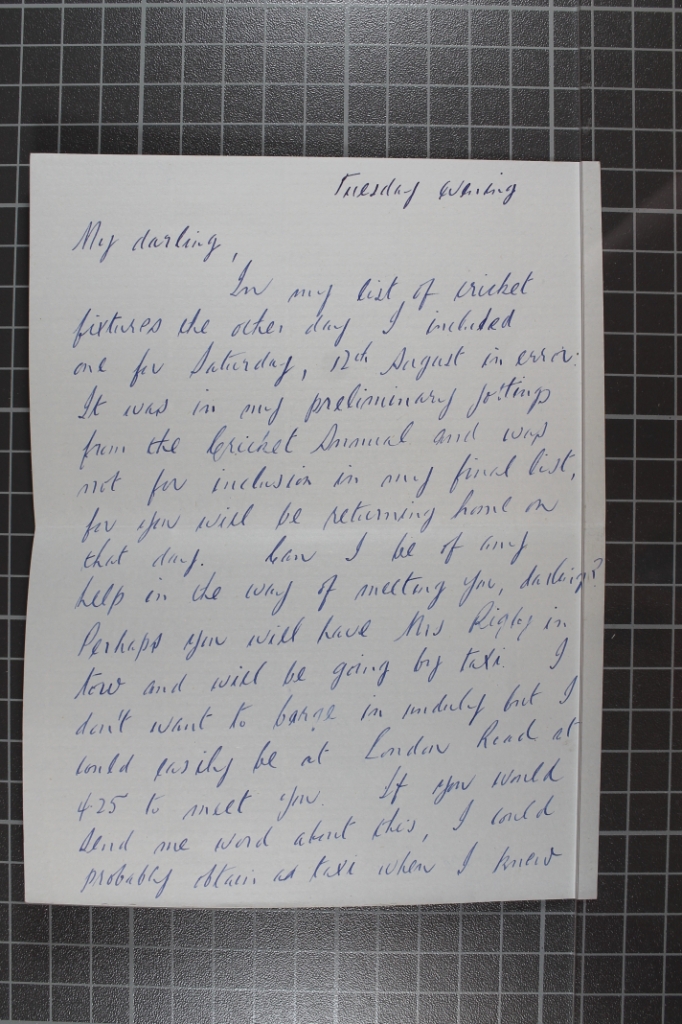 Tuesday evening
My darling,
In my list of cricket
fixtures the other day I included
one for Saturday, 12th August in error.
It was in my preliminary jottings
from the Cricket Annual and was
not for inclusion in my final list,
for you will be returning home on
that day. Can I be of any
help in the way of meeting you, darling?
Perhaps you will have Mrs Rigby in
tow and will be going by taxi. I
don't want to barge in unduly but I
could easily be at London Road at
4.25 to meet you. If you would
send me word about this, I could
probably obtain a taxi when I knew